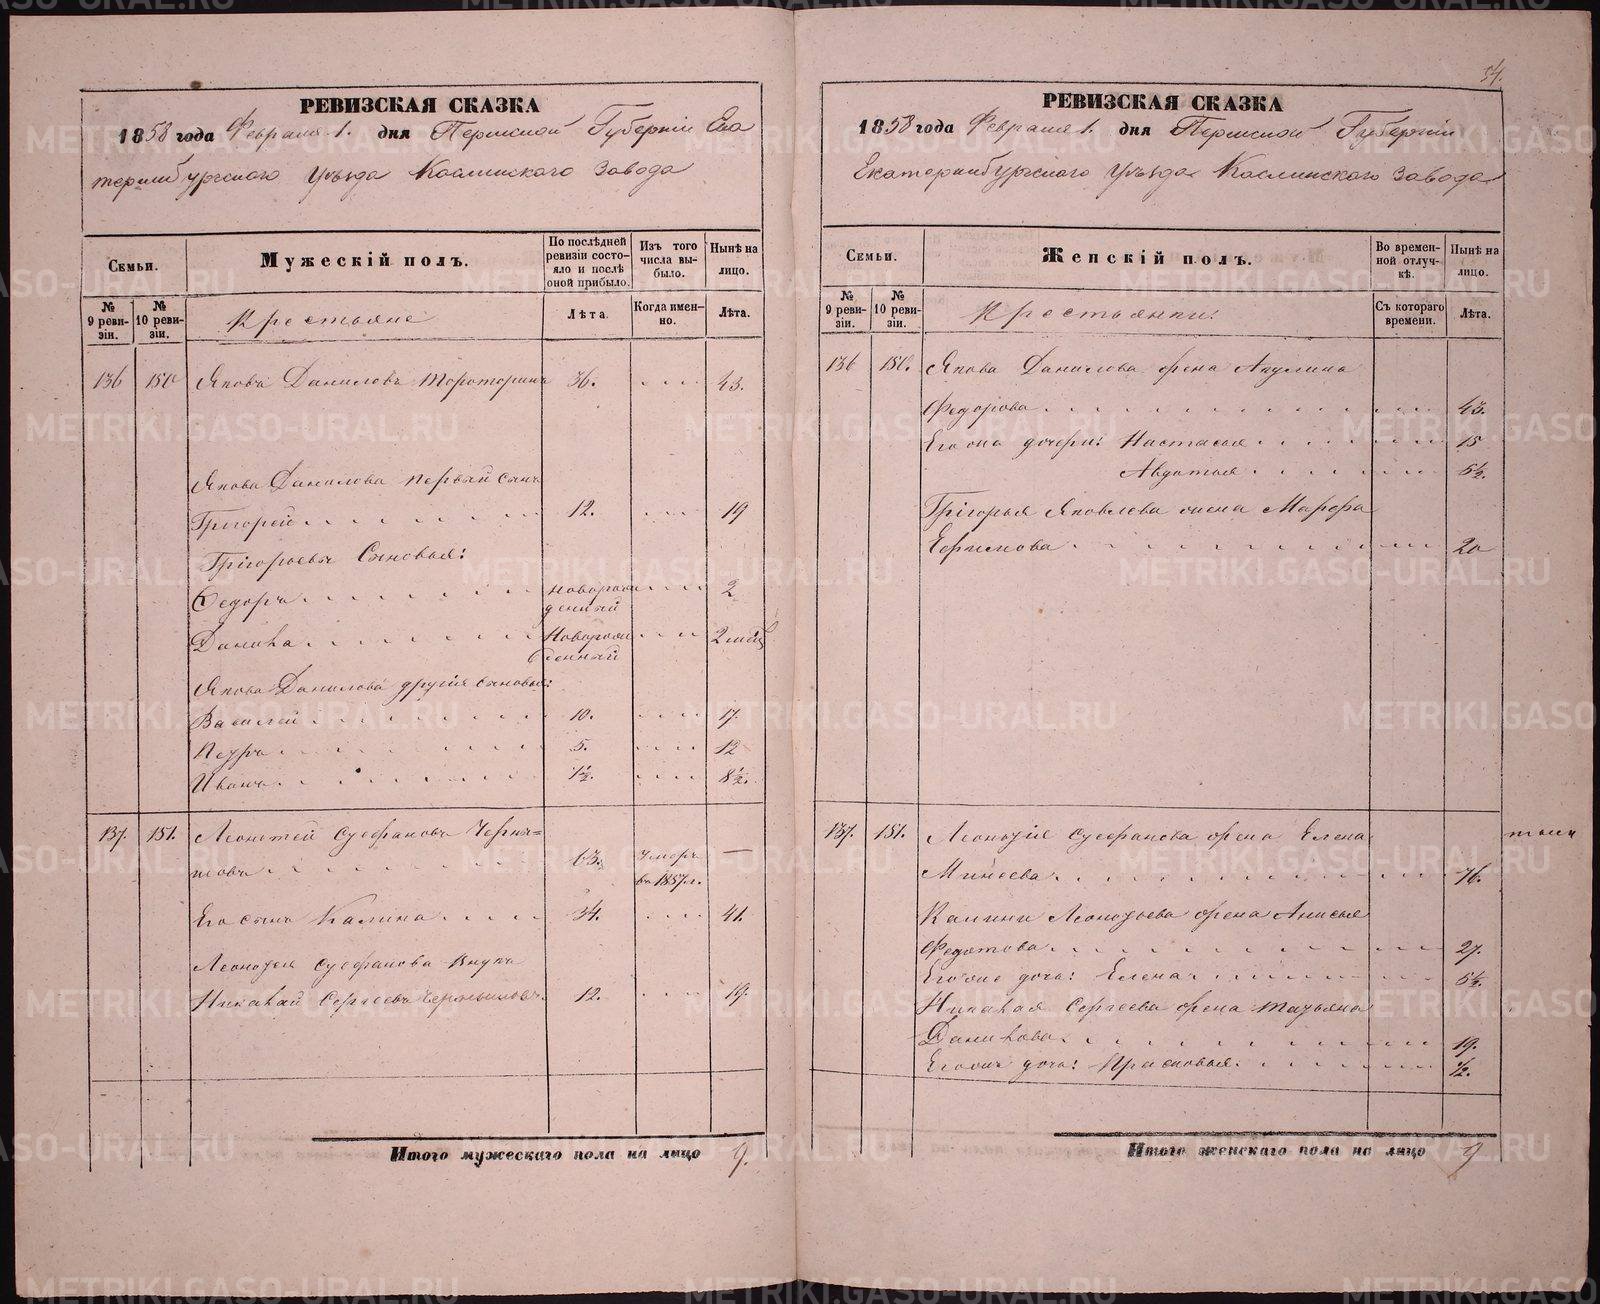 РЕВИЗСКАЯ СКАЗКА
1858 года Февраля 1. дня Пермской Губерніи Ека
теринбургскаго Уѣзда Каслинскаго Завода
Семьи.
Мужескій полъ.
По послѣдней ревизіи состояло и послѣ оной прибыло.
Изъ того числа выбыло.
Нынѣ на лицо.
№ 9 ревизіи.
№ 10 ревизіи.
Крестьяне
Лѣта.
Когда именно.
Лѣта.
136 150 Яковъ Даниловъ 36. 43.
Якова Данилова первый сынъ
Григорей 12. 19
Григорьевы Сыновья:
Федоръ новорож
денный 2
Данила Новорож
денный 2 мѣс
Якова Данилова другія сыновья:
Василей 10. 17.
Петръ 5. 12
Иванъ 1½. 8½.
137. 151. Леонтей Стефановъ Черны=
шовъ 63. умеръ —
въ 1857 г.
Его сынъ Калина 34. 41.
Леонтья Стефанова внукъ
Николай Сергеевъ Чернышовъ. 12. 19.
Итого мужескаго пола на лицо 9.
54.
РЕВИЗСКАЯ СКАЗКА
1858 года Февраля 1. дня Пермской Губерніи
Екатеринбургскаго Уѣзда Каслинскаго Завода
Семьи.
Женскій полъ.
Во временной отлучкѣ.
Нынѣ на лицо.
№ 9 ревизіи.
№ 10 ревизіи.
Крестьянки:
Съ котораго времени.
Лѣта.
136 150. Якова Данилова жена Акулина
Федорова 43.
Его она дочери: Настасья 15
Авдотья 6½.
Григорья Яковлева жена Марфа
Ефимова 20
137. 151. Леонтія Стефанова жена Елена
Минеева 76.
Калины Леонтьева жена Анисья
Федотова 27.
Его дочь: Елена 6½.
Николая Сергеева жена Татьяна
Данилова 19.
дочь: Прасковья ½.
Итого женскаго пола на лицо 9
METRIKI.GASO-URAL.RU